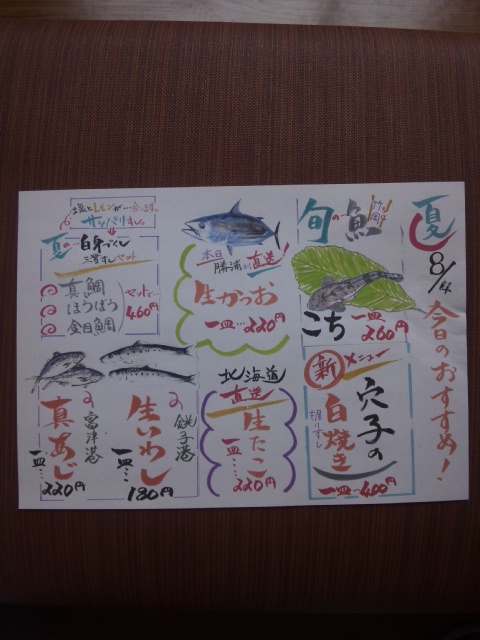 夏
8/4
今日のおすすめ!
旬の魚
こち
一皿…260円
新メニュー
穴子の
白焼き
握りずし
一皿…400円
本日
勝浦より直送!
生かつお
一皿…220円
北海道
直送
生たこ
一皿…
220円
塩とレモンが…合います。
サッパリすし。
夏の…白身づくし
三貫すしセット
真鯛
ほうぼう
金目鯛
セットで…
460円
銚子港
生いわし
一皿…
180円
富津港
真あじ
一皿…
220円